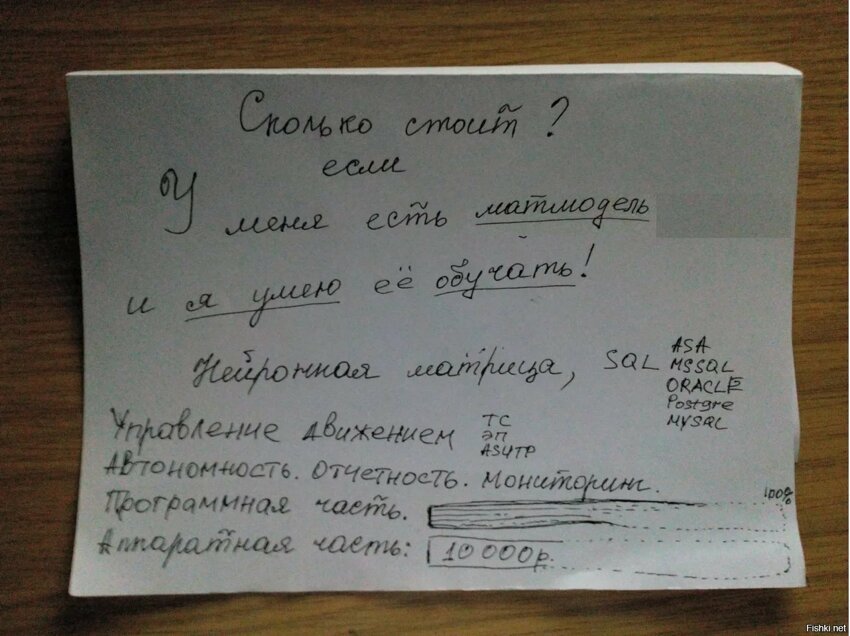 Сколько стоит?
если
У меня есть матмодель
и я умею её обучать!
Нейронная матрица, SQL ASA
MSSQL
ORACLE
Postgre
MYSQL
Управление движением ТС
ЭП
АSУТР
Автономность. Отчетность. Мониторинг.
Программная часть. 100%
Аппаратная часть: 10 000р.
Fishki.net